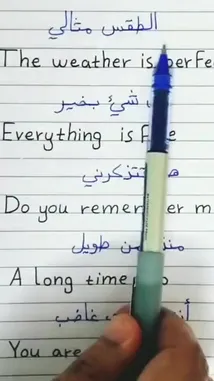 الطقس مثالي
The weather is perfe
شيئ بخير
Everything is f
تتذكرني
Do you remem er m
من طويل
A long time
غاضب
You are